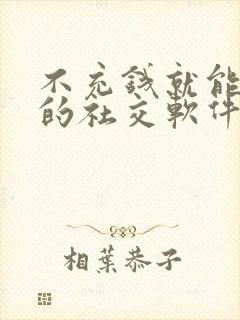 不充錢就能
的社交軟件
相葉恭子